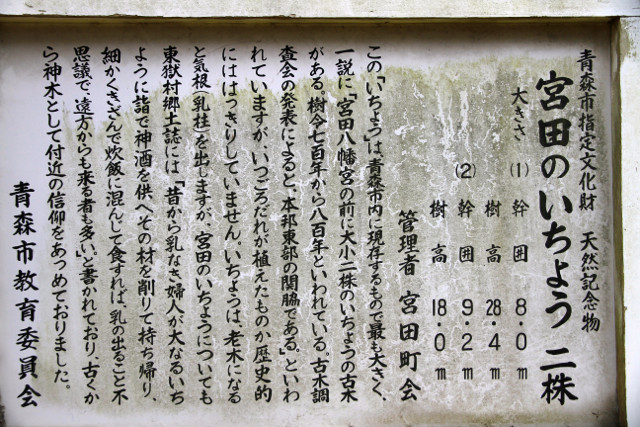 青森市指定文化財 天然記念物
宮田のいちょう 二株
大きさ (1) 幹囲 8.0m
樹高 28.4m
(2) 幹囲 9.2m
樹高 18.0m
管理者 宮田町会
この「いちょう」は、青森市内に現存するもので最も大きく、
一説に「宮田八幡宮の前に大小二株のいちょうの古木
がある。樹令七百年から八百年といわれている。古木調
査会の発表によると、本邦東部の関脇である。」といわ
れていますが、いつごろだれが植えたものか歴史的
にははっきりしていません。いちょうは、老木になる
と気根(乳柱)を出しますが、宮田のいちょうについても
東嶽村郷土誌には「昔から乳なき婦人が大なるいち
ように詣で神酒を供へその材を削りて持ち帰り、
細かくきざんで炊飯に混んじて食すれば、乳の出ること不
思議で、遠方からも来る者も多い」と書かれており、古くか
ら神木として付近の信仰をあつめておりました。
青森市教育委員会